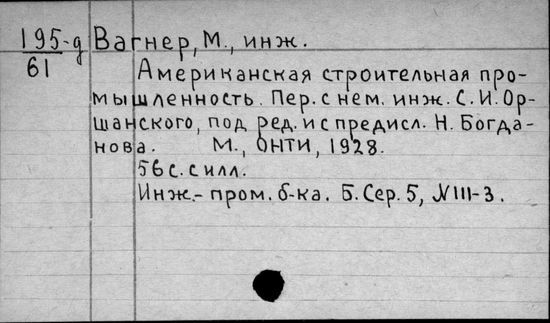 195-д Вагнер, М., инж.
61
Американская строительная про-
мышленность. Пер. с нем. инж. С. И. Ор-
шанского, под ред. и с предисл. Н. Богда-
нова. М., ОНТИ, 1928.
56 с. с илл.
Инж.- пром. б-ка. Б. Сер. 5, № III-3.